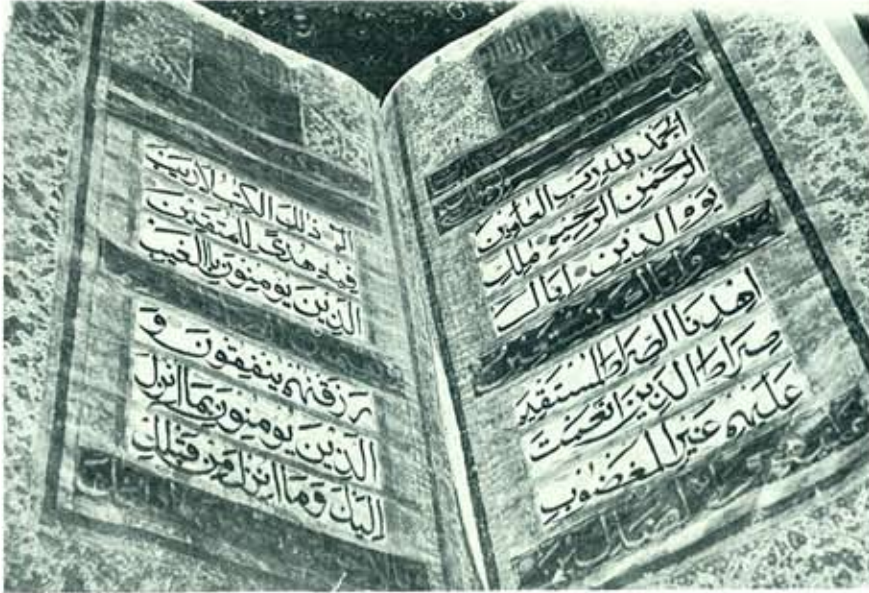 الحمد لله رب العالمين
الرحمن الرحيم ملك
يوم الدين اياك
نعبد واياك نستعين
اهدنا الصراط المستقيم
صراط الذين انعمت
عليهم غير المغضوب
الضالين
الم ذلك الكتب لا ريب
فيه هدى للمتقين
الذين يومنون بالغيب
رزقنهم ينفقون و
الذين يومنون بما انزل
اليك وما انزل من قبلك